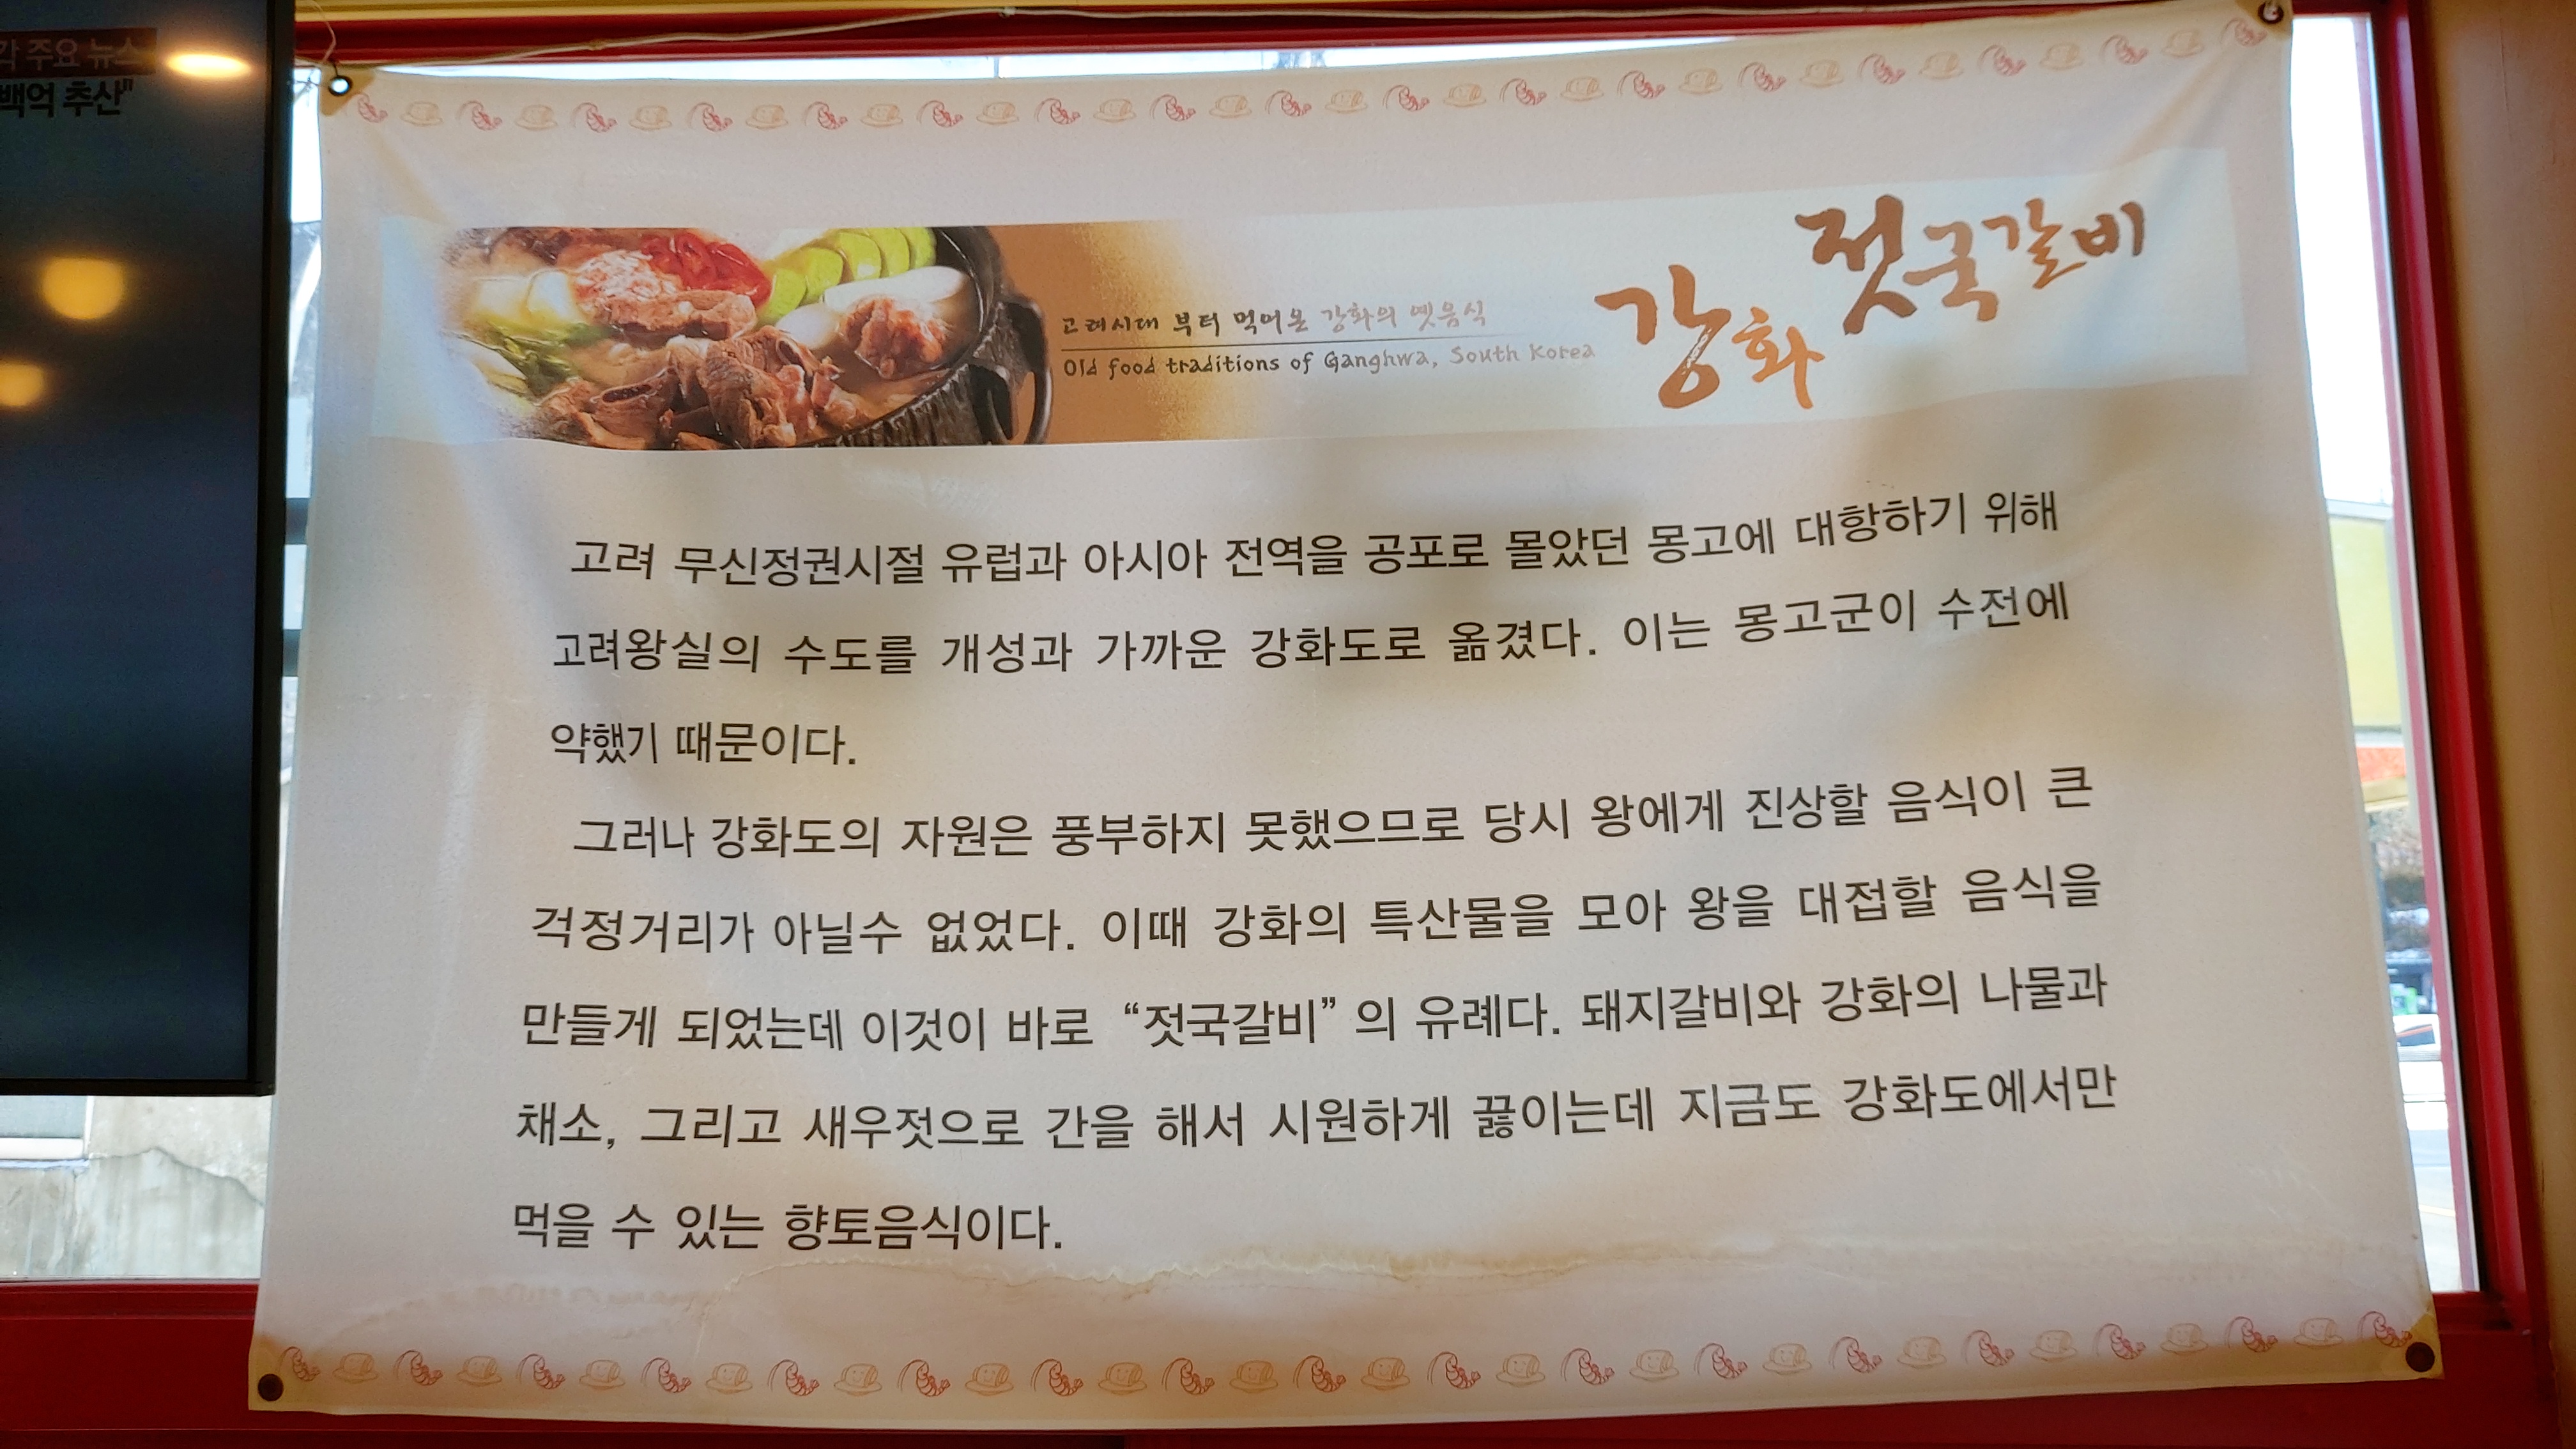 각 주요 뉴스
백억 추산"
강화 젓국갈비
고려시대 부터 먹어온 강화의 옛음식
Old food traditions of Ganghwa, South Korea
고려 무신정권시절 유럽과 아시아 전역을 공포로 몰았던 몽고에 대항하기 위해
고려왕실의 수도를 개성과 가까운 강화도로 옮겼다. 이는 몽고군이 수전에
약했기 때문이다.
그러나 강화도의 자원은 풍부하지 못했으므로 당시 왕에게 진상할 음식이 큰
걱정거리가 아닐수 없었다. 이때 강화의 특산물을 모아 왕을 대접할 음식을
만들게 되었는데 이것이 바로 “젓국갈비” 의 유례다. 돼지갈비와 강화의 나물과
채소, 그리고 새우젓으로 간을 해서 시원하게 끓이는데 지금도 강화도에서만
먹을 수 있는 향토음식이다.